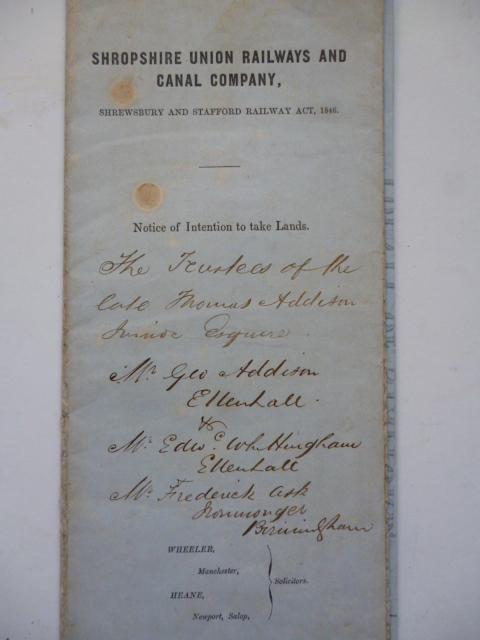 SHROPSHIRE UNION RAILWAYS AND
CANAL COMPANY,
SHREWSBURY AND STAFFORD RAILWAY ACT, 1846.
Notice of Intention to take Lands.
The Trustees of the
late Thomas Addison
Junior Esquire.
Mr. Geo Addison
Ellenhall.
&
Mr. Edwd. Whittingham
Ellenhall
Mr. Frederick Ash
Ironmonger
Birmingham
WHEELER,
Manchester,
Solicitors.
HEANE,
Newport, Salop,